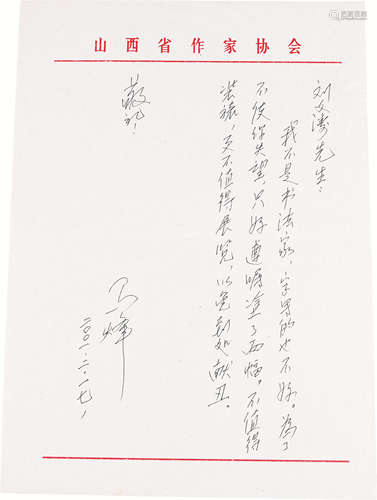 山西省作家协会
刘文涛先生：
我不是书法家，字写的也不好。為了
不使你失望，只好遵嘱塗了两幅。不值得
装裱，更不值得展览，以免到处献丑。
敬礼！
马烽
二〇〇一.二.十七.